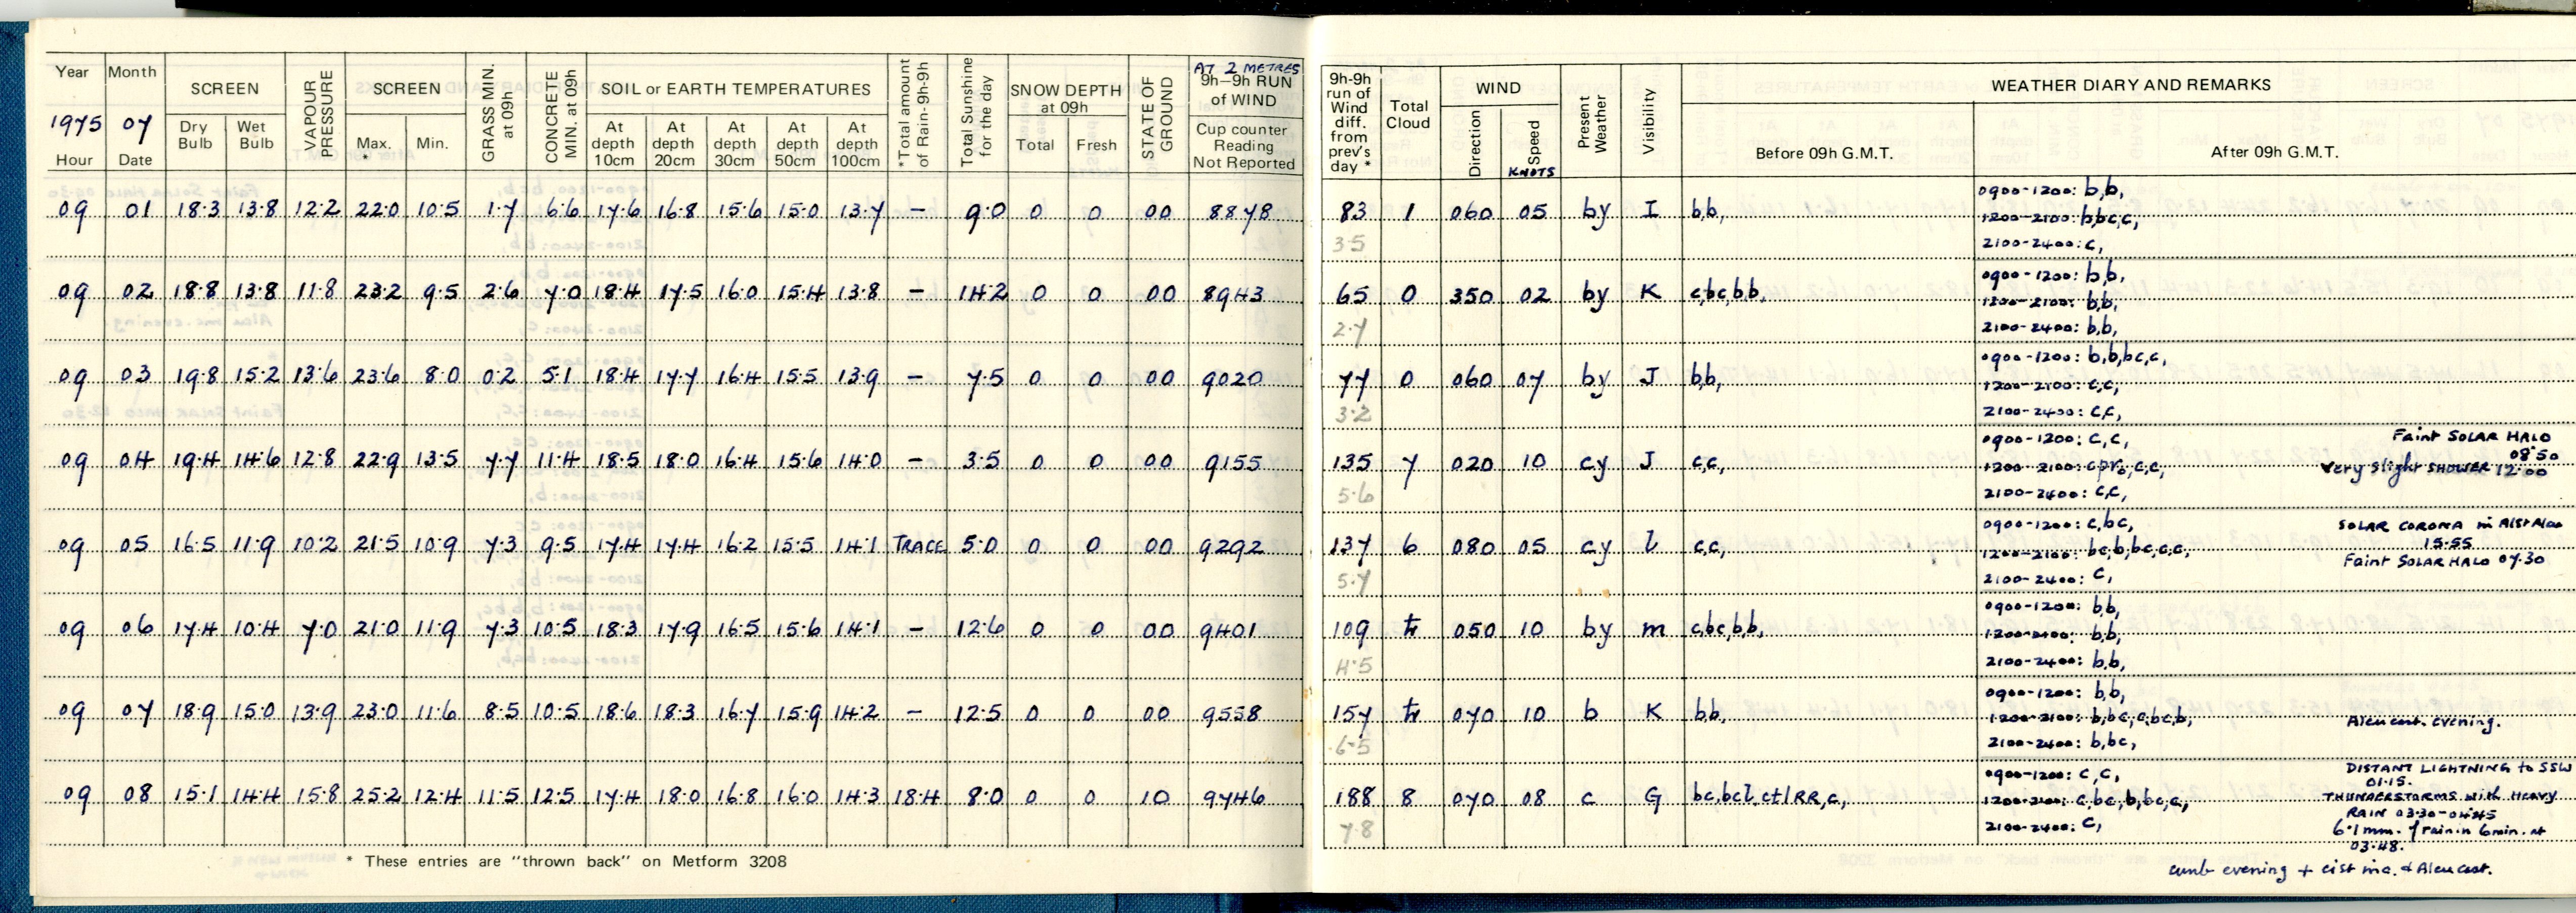 Year Month SCREEN VAPOUR PRESSURE SCREEN GRASS MIN. at 09h CONCRETE MIN. at 09h SOIL or EARTH TEMPERATURES *Total amount of Rain-9h-9h Total Sunshine for the day SNOW DEPTH at 09h STATE OF GROUND AT 2 METRES 9h-9h RUN of WIND
1975 07 Dry Bulb Wet Bulb Max. * Min. At depth 10cm At depth 20cm At depth 30cm At depth 50cm At depth 100cm Total Fresh Cup counter Reading Not Reported
Hour Date
09 01 18.3 13.8 12.2 22.0 10.5 1.7 6.6 17.6 16.8 15.6 15.0 13.7 – 9.0 0 0 00 8878
09 02 18.8 13.8 11.8 23.2 9.5 2.6 7.0 18.4 17.5 16.0 15.4 13.8 – 14.2 0 0 00 8943
09 03 19.8 15.2 13.6 23.6 8.0 0.2 5.1 18.4 17.7 16.4 15.5 13.9 – 7.5 0 0 00 9020
09 04 19.4 14.6 12.8 22.9 13.5 7.7 11.4 18.5 18.0 16.4 15.6 14.0 – 3.5 0 0 00 9155
09 05 16.5 11.9 10.2 21.5 10.9 7.3 9.5 17.4 17.4 16.2 15.5 14.1 TRACE 5.0 0 0 00 9292
09 06 17.4 10.4 7.0 21.0 11.9 7.3 10.5 18.3 17.9 16.5 15.6 14.1 – 12.6 0 0 00 9401
09 07 18.9 15.0 13.9 23.0 11.6 8.5 10.5 18.6 18.3 16.7 15.9 14.2 – 12.5 0 0 00 9558
09 08 15.1 14.4 15.8 25.2 12.4 11.5 12.5 17.4 18.0 16.8 16.0 14.3 18.4 8.0 0 0 10 9746
* These entries are "thrown back" on Metform 3208
9h-9h run of Wind diff. from prev's day * Total Cloud WIND Present Weather Visibility WEATHER DIARY AND REMARKS
Direction Speed KNOTS Before 09h G.M.T. After 09h G.M.T.
0900-1200: b,b,
83 1 060 05 by I b,b, 1200-2100: b,bc,c,
3.5 2100-2400: c,
0900-1200: b,b,
65 0 350 02 by K c,bc,b,b, 1200-2100: b,b,
2.7 2100-2400: b,b,
0900-1200: b,b,bc,c,
77 0 060 07 by J b,b, 1200-2100: c,c,
3.2 2100-2400: c,c,
0900-1200: c,c, Faint SOLAR HALO 08.50
135 7 020 10 cy J c,c, 1200-2100: cpr₀,c,c, Very slight SHOWER 12.00
5.6 2100-2400: c,c,
0900-1200: c,bc, SOLAR CORONA in
137 6 080 05 cy l c,c, 1200-2100: bc,b,bc,c,c, 15.55
5.7 2100-2400: c, Faint SOLAR HALO 07.30
0900-1200: b,b,
109 tr 050 10 by m c,bc,b,b, b,b,
4.5 2100-2400: b,b,
0900-1200: b,b,
157 tr 070 10 b K b,b, 1200-2100: b,bc,c,bc,b, Alcu cast. evening.
6.5 2100-2400: b,bc,
0900-1200: c,c, DISTANT LIGHTNING to SSW 01.15.
188 8 070 08 c G bc,bcl,ctlRR,c, 1200-2100: c,bc,b,bc,c, THUNDERSTORMS with HEAVY
7.8 2100-2400: c, RAIN 03.30-04.45
6.1 mm. of rain in 6 min. at
03.48.
evening + & Alcu cast.